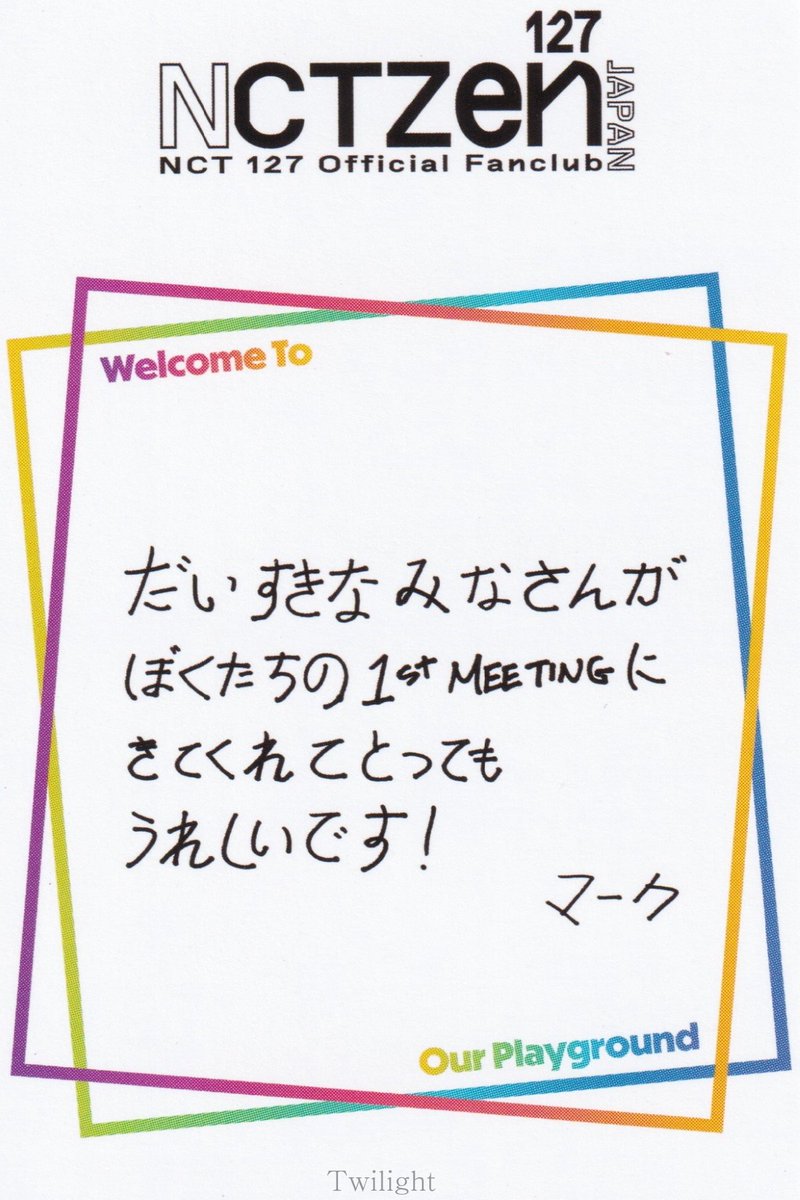 127
NCTzen
JAPAN
NCT 127 Official Fanclub
Welcome To
だいすきなみなさんが
ぼくたちの 1st MEETINGに
きてくれてとっても
うれしいです!
マーク
Our Playground
Twilight